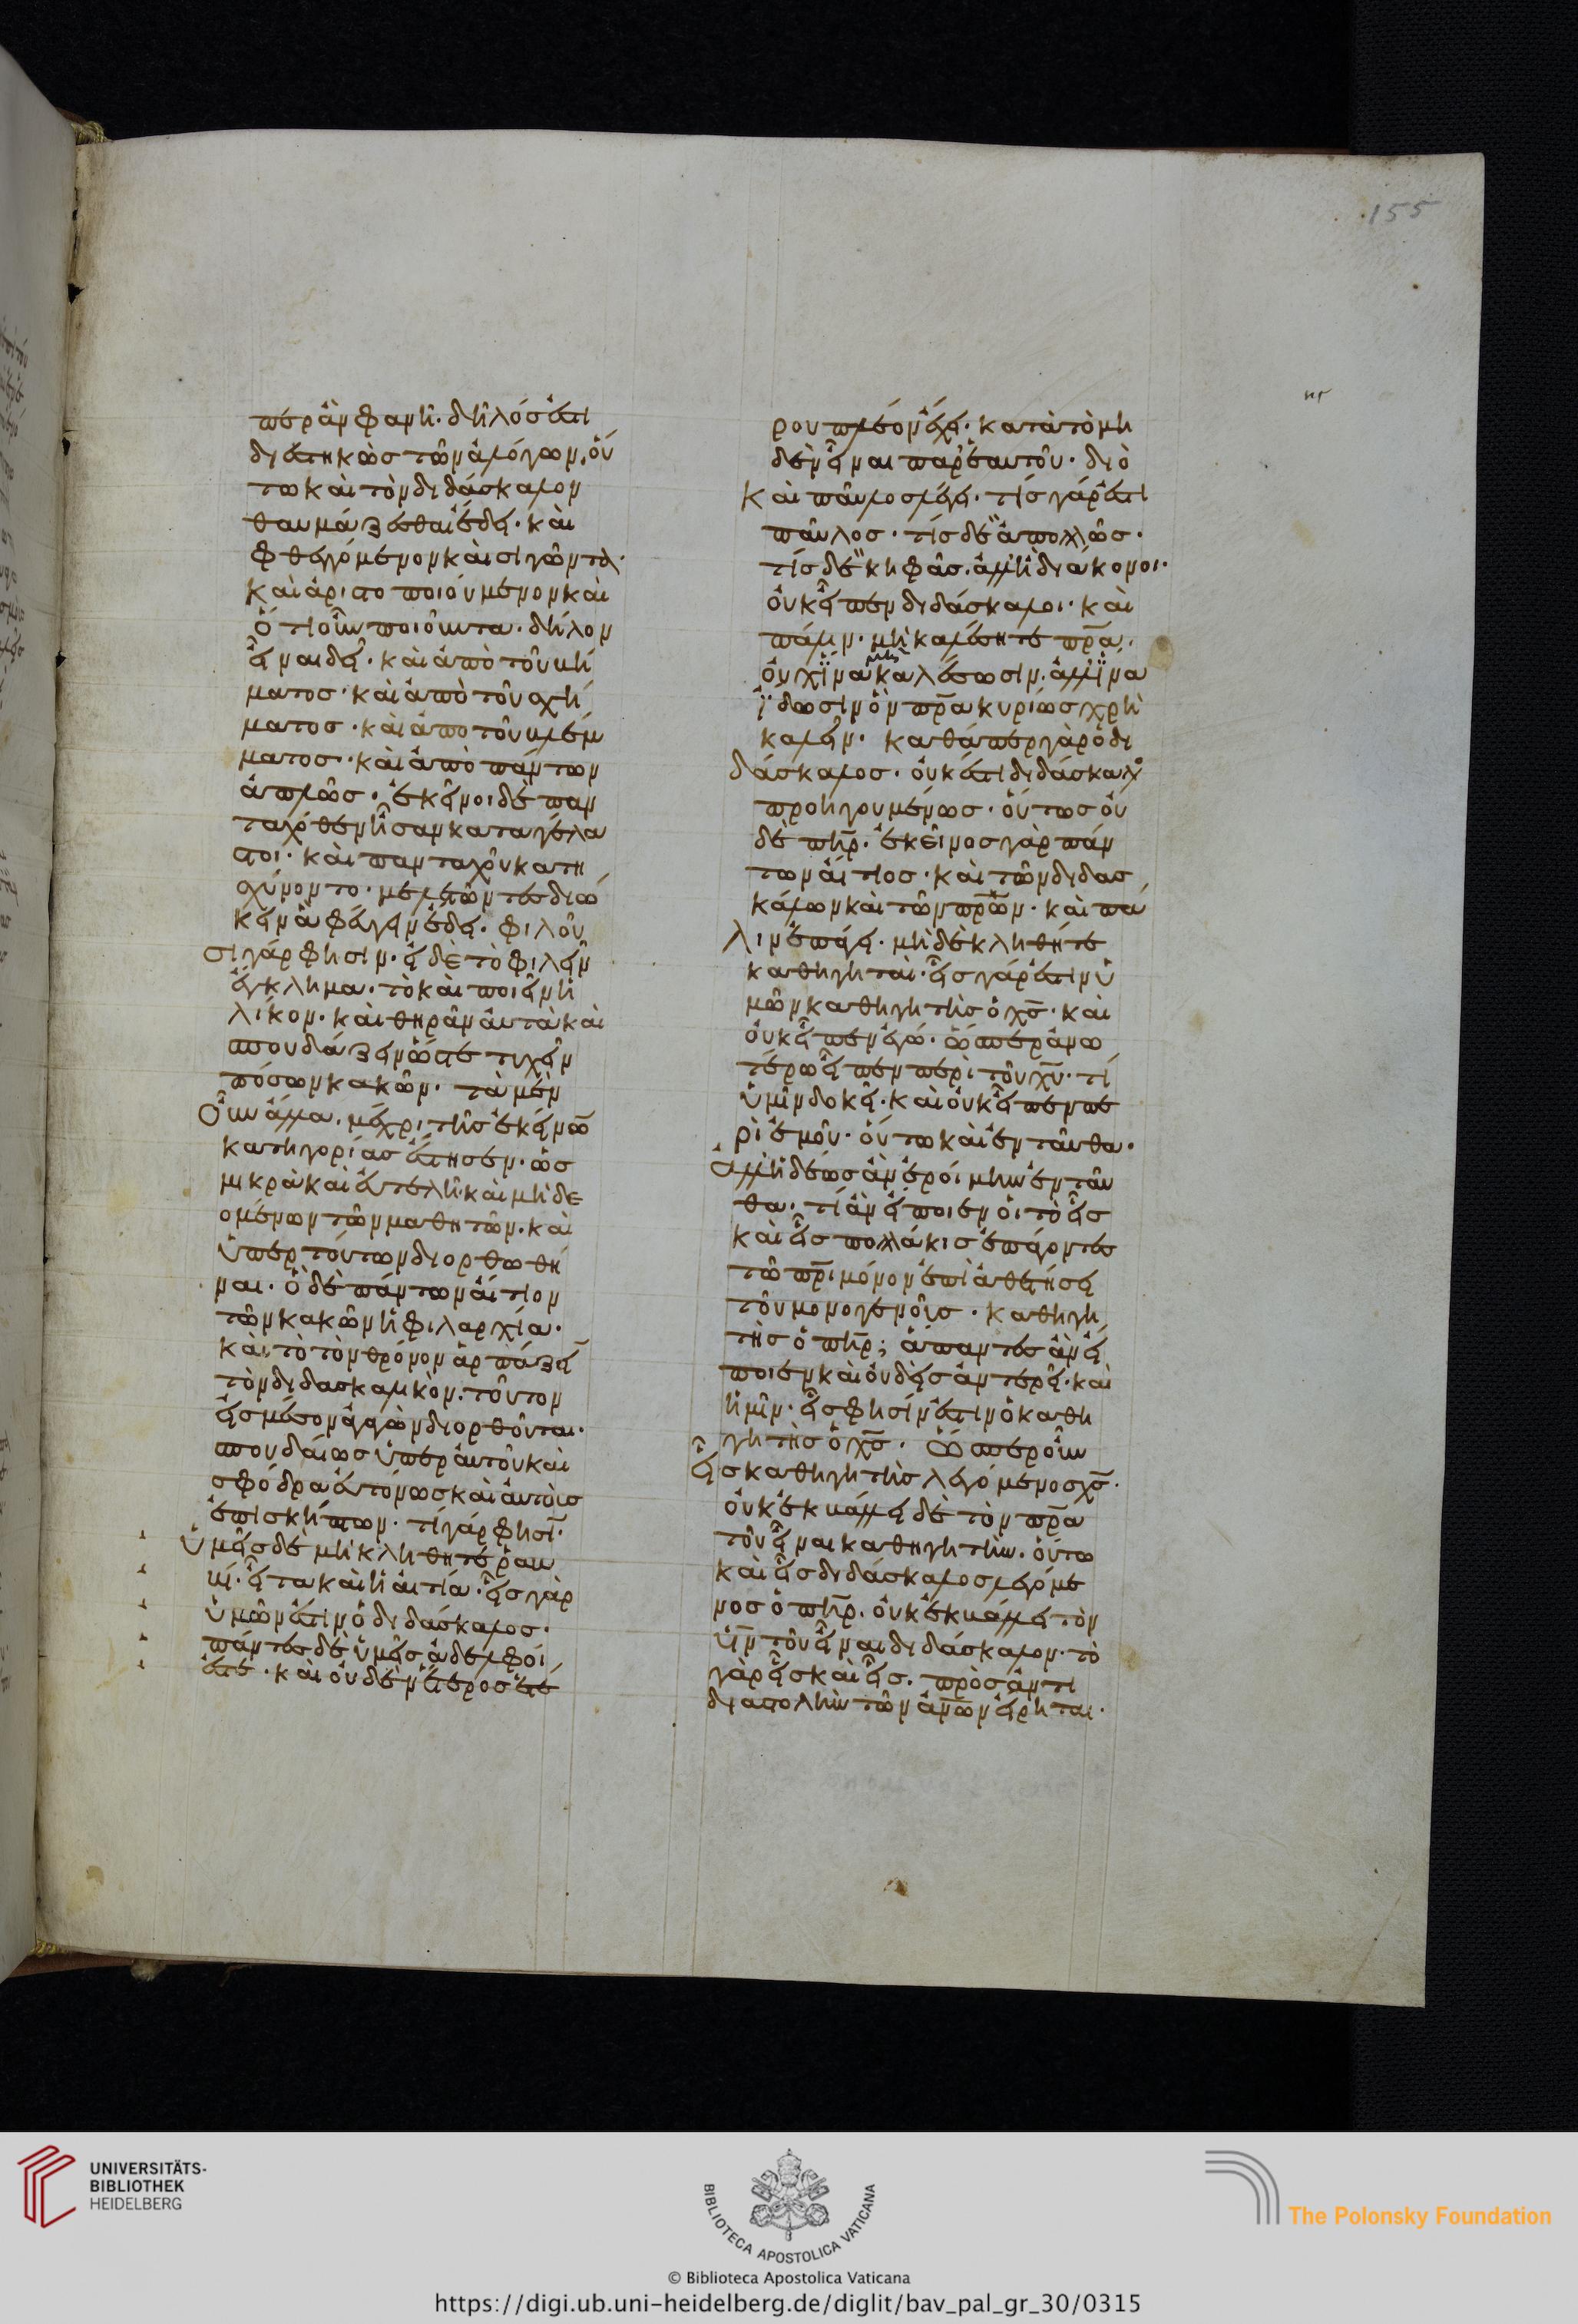 περ ἂν φανῆ· δῆλός ἐστι
διεστηκὼς τῶν ἀλόγων, οὕ
τω καὶ τὸν διδάσκαλον
θαυμάζεσθαι ἔδει· καὶ
φθεγγόμενον καὶ σιγῶντα·
καὶ ἀριστοποιούμενον καὶ
ὅτι οὖν ποιοῦντα· δῆλον
εἶναι δεῖ· καὶ ἀπὸ τοῦ βή
ματος· καὶ ἀπὸ τοῦ σχή
ματος· καὶ ἀπο τοῦ βλέμ
ματος· καὶ ἀπὸ πάντων
ἁπλῶς· ἐκεῖνοι δὲ παν
ταχόθεν ἦσαν καταγέλα
στοι· καὶ πανταχοῦ κατη
σχύνοντο· μελετῶντες διώ
κειν ἃ φεύγειν ἔδει· φιλοῦ
σι γάρ φησιν· εἰ δὲ τὸ φιλεῖν
ἔγκλημα· τὸ καὶ ποιεῖν ἡ
λίκον· καὶ θηρᾶν αὐτὰ καὶ
σπουδάζειν ὥστε τυχεῖν
πόσων κακῶν· τὰ μὲν
οὖν ἄλλα· μέχρι τῆς ἐκείνω̅
κατηγορίας ἔστησεν· ὡς
μικρὰ καὶ εὐτελῆ· καὶ μὴ δε
ομένων τῶν μαθητῶν· καὶ
ὑπὲρ τούτων διορθωθῆ
ναι· ὃ δὲ πάντων αἴτιον
τῶν κακῶν ἡ φιλαρχία·
καὶ τὸ τὸν θρόνον ἁρπάζει̅
τὸν διδασκαλικὸν· τοῦτον
εἰς μέσον ἀγαγὼν διορθοῦται·
σπουδαίως ὑπὲρ αὐτοῦ καὶ
σφόδρα εὐτόνως καὶ αὐτοῖς
ἐπισκήπτων· τί γάρ φησι̅·
ὑμεῖς δὲ μὴ κληθῆτε ῥαβ
βί· εἶτα καὶ ἡ αἰτία· εἷς γὰρ
ὑμῶν ἐστιν ὁ διδάσκαλος·
πάντες δὲ ὑμεῖς ἀδελφοί
ἐστε· καὶ οὐδὲν ἕτερος ἑτέ
ρου πλέον ἔχει· κατὰ τὸ μη
δὲν εἶναι παρ᾽ ἑαυτοῦ· διὸ
καὶ παῦλος λέγει· τίς γάρ ἐστι
παῦλος· τίς δὲ ἀπολλῶς·
τίς δὲ κηφᾶς· ἀλλ᾽ ἢ διάκονοι·
οὐκ εἶπεν διδάσκαλοι· καὶ
πάλιν· μὴ καλέσητε π̅ρ̅α̅·
οὐχ ἵνα μὴ καλέσωσιν· ἀλλ᾽ ἵνα
ἴδωσιν ὃν π̅ρ̅α̅ κυρίως χρὴ
καλεῖν· καθάπερ γὰρ ὁ δι
δάσκαλος· οὐκ ἔστι διδάσκαλο
προηγουμένως· οὕτως οὐ
δὲ π̅η̅ρ̅· ἐκεῖνος γὰρ πάν
των αἴτιος· καὶ τῶν διδασ
κάλων καὶ τῶν π̅ρ̅ω̅ν̅· καὶ πά
λιν ἐπάγει· μὴ δὲ κληθῆτε
καθηγηταὶ· εἷς γάρ ἐστιν ὑ
μῶν καθηγητὴς ὁ χ̅ς̅· καὶ
οὐκ εἶπεν ἐγώ· ὥσπερ ἀνω
τέρω εἶπεν περὶ τοῦ χ̅υ̅· τί
ὑμῖν δοκεῖ· καὶ οὐκ εἶπεν πε
ρὶ ἐμοῦ· οὕτω καὶ ἐνταῦθα·
ἀλλ᾽ ἡδέως ἂν ἐροίμην ἐνταῦ
θα· τί ἂν εἴποιεν οἱ τὸ εἷς
καὶ εἷς πολλάκις ἐπάγοντες
τῶ π̅ρ̅ι̅ μόνον ἐπὶ ἀθετήσει
τοῦ μονογενοῦς· καθηγη
τὴς ὁ π̅η̅ρ̅; ἅπαντες ἂν εἴ
ποιεν καὶ οὐδεὶς ἀντερεῖ· καὶ
μὴν· εἷς φησίν ἐστιν ὁ καθη
γητὴς ὁ χ̅ς̅· ὥσπερ οὖν
εἷς καθηγητὴς λεγόμενος χ̅ς̅·
οὐκ ἐκβάλλει δὲ τὸν π̅ρ̅α̅
τοῦ εἶναι καθηγητὴν· οὕτω
καὶ εἷς διδάσκαλος λεγόμε
νος ὁ π̅η̅ρ̅· οὐκ ἐκβάλλει τὸν
υ̅ν̅ τοῦ εἶναι διδάσκαλον· τὸ
γὰρ εἷς καὶ εἷς· πρὸς ἀντι
διαστολὴν τῶν α̅ν̅ω̅ν̅ εἴρηται·
155
UNIVERSITÄTS-
BIBLIOTHEK
HEIDELBERG
BIBLIOTECA APOSTOLICA VATICANA
The Polonsky Foundation
© Biblioteca Apostolica Vaticana
https://digi.ub.uni-heidelberg.de/diglit/bav_pal_gr_30/0315